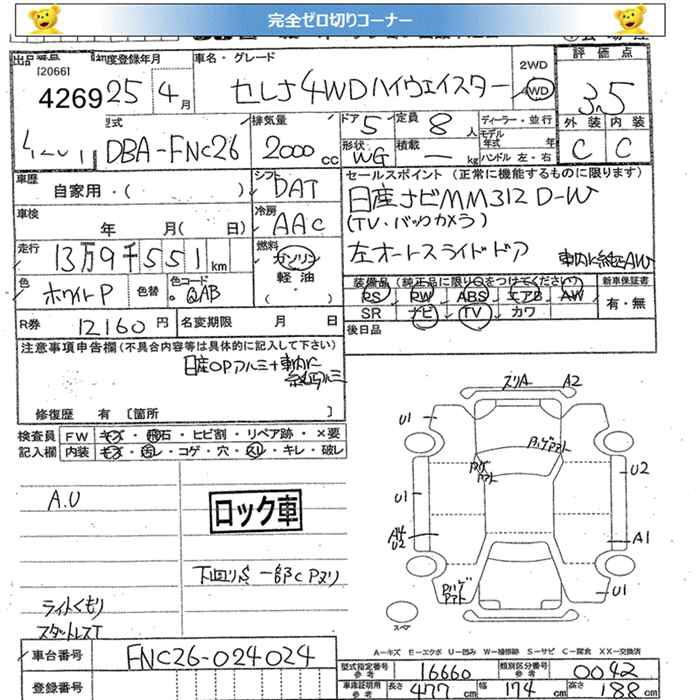 完全ゼロ切りコーナー
出品番号 初度登録年月 車名・グレード 2WD 評価点
[2066]
4269 25年 4月 セレナ4WDハイウェイスター 4WD 3.5
型式 排気量 ドア 定員 ディーラー・並行 外装 内装
DBA-FNC26 2000cc 5 8人 モデル年式 年 C C
形状 WG 積載 — kg ハンドル 左・右
車歴 シフト セールスポイント (正常に機能するものに限ります)
自家用・( ) DAT 日産ナビMM312D-W
車検 冷房 (TV・バックカメラ)
年 月( 日) AAC
走行 燃料 左オートスライドドア
13万9千551km ガソリン 車内に純正AW
軽油
( ・ )
色 色替 色コード 装備品(純正品に限り○をつけてください) 新車保証書
ホワイトP QAB PS PW ABS エアB AW 有・無
R券 12160円 名変期限 月 日 SR ナビ TV カワ
後日品
注意事項申告欄(不具合内容等は具体的に記入して下さい)
日産OPアルミ+車内に
純正アルミ
修復歴 有 [箇所 ]
検査員 FW キズ・飛石・ヒビ割・リペア跡・×要
記入欄 内装 キズ・汚レ・コゲ・穴・スレ・キレ・破レ
ズリA A2
U1
ハゲアト
U2
U1
A.U
ロック車
A4
U2
A1
下回りS 一部CPヌリ
Pハゲ
アト
U1
ライトくもり
スタットレスT
スペア
A-キズ E-エクボ U-凹み W-補修跡 S-サビ C-腐食 XX-交換済
車台番号 FNC26-024024
型式指定番号 参考 16660 類別区分番号 参考 0042
登録番号 車庫証明用 参考 長さ 477cm 幅 174cm 高さ 188cm